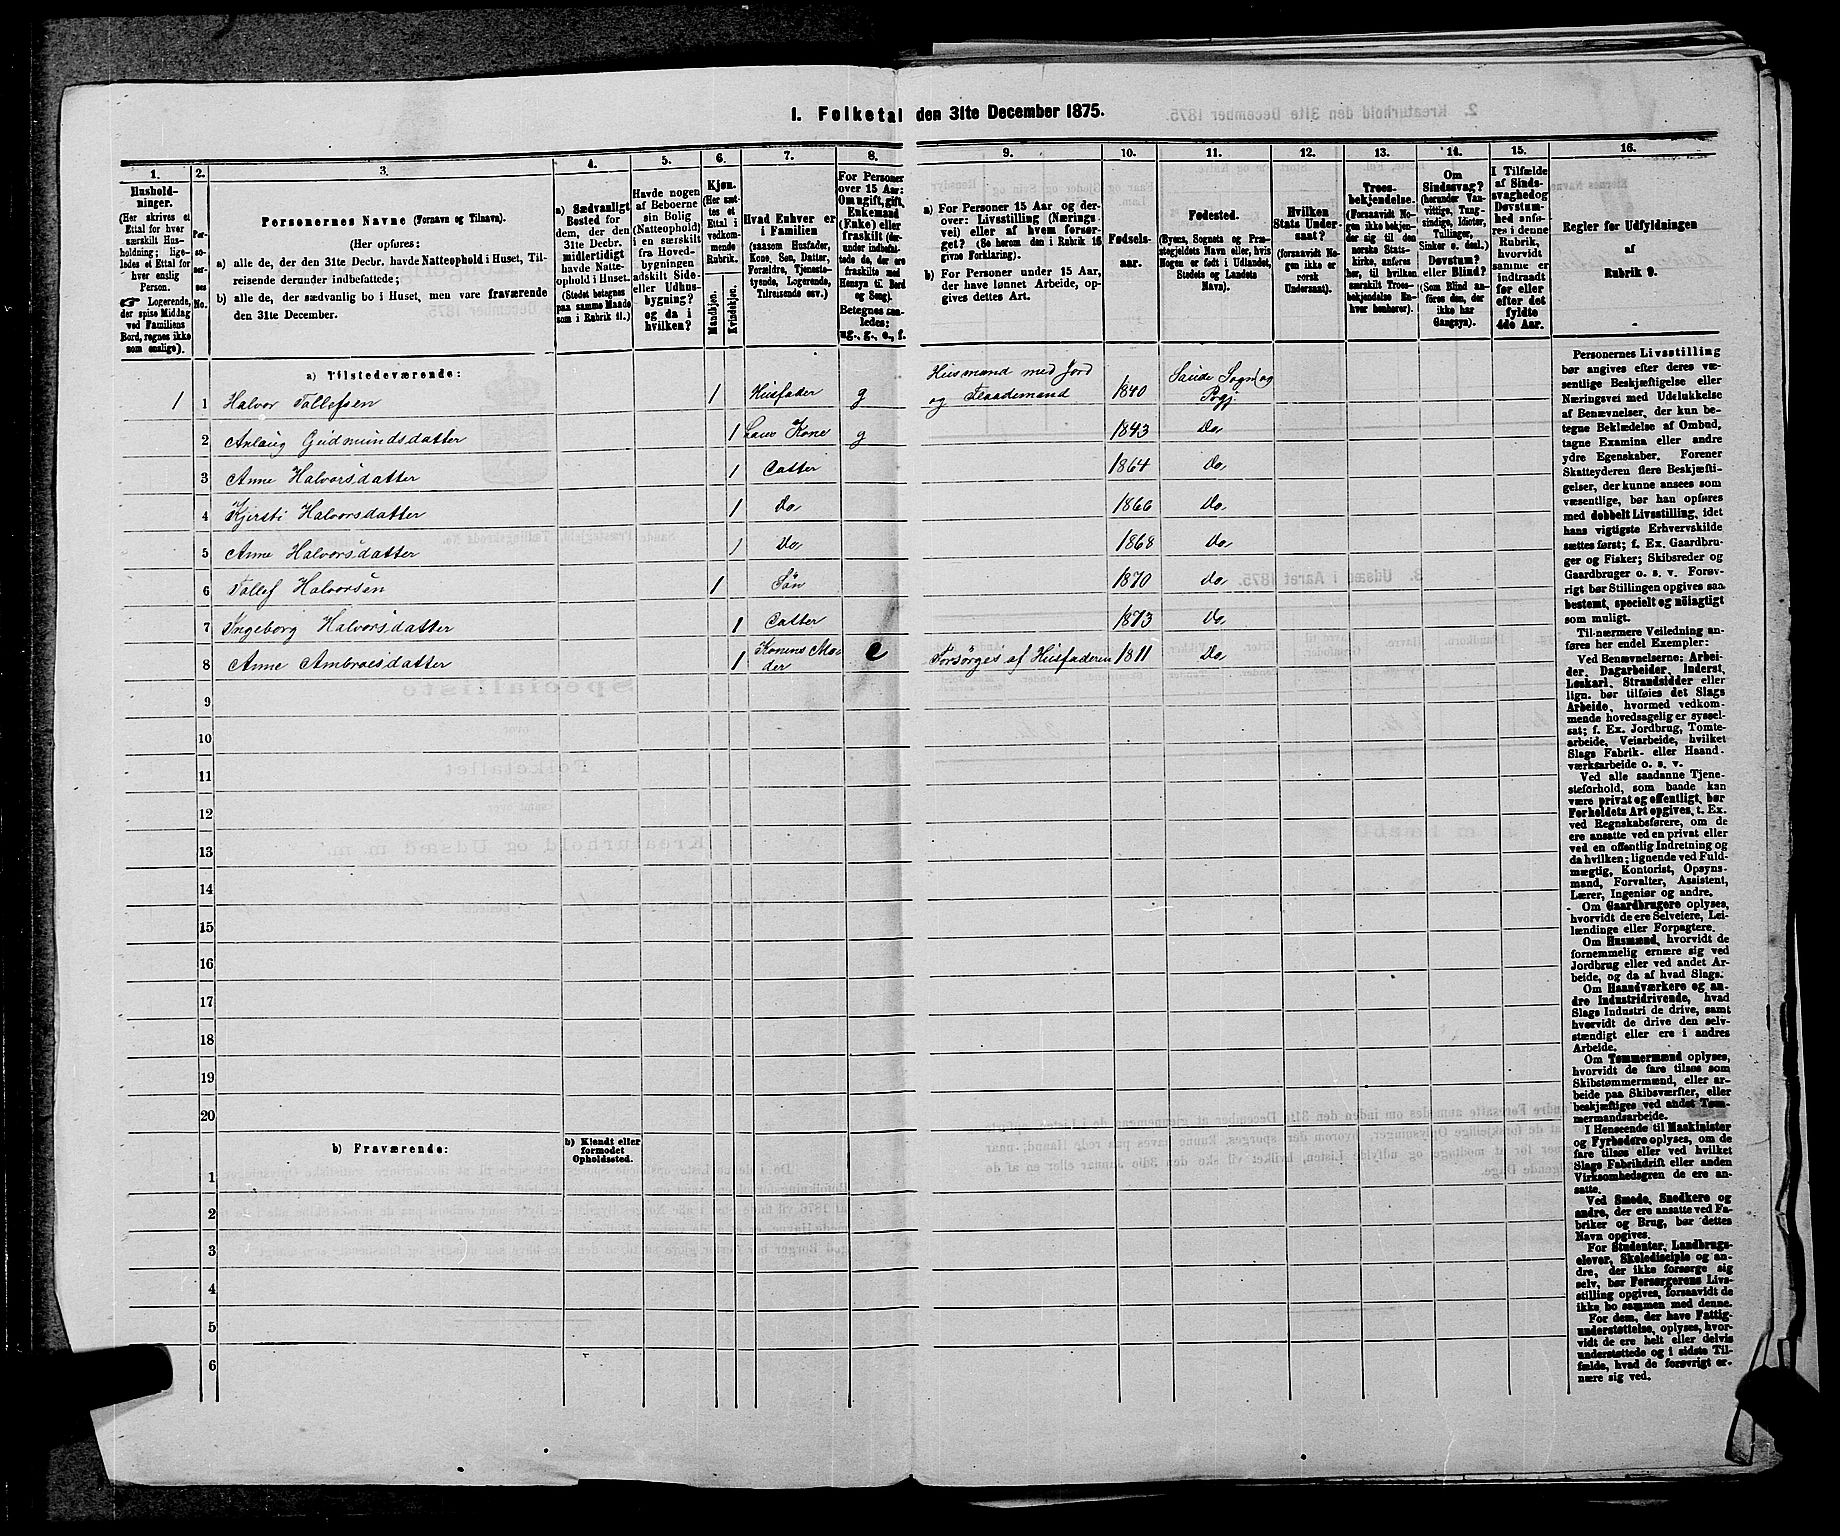 1. Folketal den 31te December 1875.
1.
Hushold-
ninger.
(Her skrives et
Ettal for hver
særskilt Hus-
holdning; lige-
ledes et Ettal for
hver enslig
Person.
☞ Logerende,
der spise Middag
ved Familiens
Bord, regnes ikke
som enslige).
2.
Per-
so-
ner-
nes
No.
3.
Personernes Navne (Fornavn og Tilnavn).
(Her opføres:
a) alle de, der den 31te Decbr. havde Natteophold i Huset, Til-
reisende derunder indbefattede;
b) alle de, der sædvanlig bo i Huset, men vare fraværende
den 31te December.
4.
a) Sædvanligt
Bosted for
dem, der den
31te Decbr.
midlertidigt
havde Natte-
ophold i Huset.
(Stedet betegnes
paa samme Maade
som i Rubrik 11.)
5.
Havde nogen
af Beboerne
sin Bolig
(Natteophold)
i en særskilt
fra Hoved-
bygningen
adskilt Side-
eller Udhus-
bygning?
og da i
hvilken?
6.
Kjøn.
(Her sæt-
tes et
Ettal i
vedkom-
mende
Rubrik.
Mandkjøn.
Kvindekjøn.
7.
Hvad Enhver er
i Familien
(saasom Husfader,
Kone, Søn, Datter,
Forældre, Tjeneste-
tyende, Logerende,
Tilreisende osv.)
8.
For Personer
over 15 Aar:
Om ugift, gift,
Enkemand
(Enke) eller
fraskilt (der-
under indbefat-
tede de, der ere
fraskilte med
Hensyn til Bord
og Seng).
Betegnes saa-
ledes:
ug., g., e., f.
9.
a) For Personer 15 Aar og der-
over: Livsstilling (Nærings-
vei) eller af hvem forsør-
get? (Se herom den i Rubrik 16
givne Forklaring).
b) For Personer under 15 Aar,
der have lønnet Arbeide, op-
gives dettes Art.
10.
Fødsels-
aar.
11.
Fødested.
(Byens, Sognets og Præ-
stegjeldets Navn eller, hvis
Nogen er født i Udlandet,
Stedets og Landets
Navn).
12.
Hvilken
Stats Under-
saat?
(forsaavidt No-
gen ikke er
norsk
Undersaat).
13.
Troes-
bekjendelse.
(Forsaavidt No-
gen ikke bekjen-
der sig til den
norske Stats-
kirke, anføres
her, til hvilken
særskilt Troes-
bekjendelse En-
hver henhører).
14.
Om
Sindssvag?
(herunder Van-
vittige, Tung-
sindige, Idioter,
Tullinger,
Sinker o. desl.)
Døvstum?
eller Blind?
(Som Blind an-
føres den, der
ikke har
Gangsyn).
15.
I Tilfælde
af Sinds-
svaghed og
Døvstum-
hed anfø-
res i denne
Rubrik,
hvorvidt
samme er
indtraadt
før eller
efter det
fyldte
4de Aar.
16.
Regler for Udfyldningen
af
Rubrik 9.
a) Tilstedeværende:
1 1 Halvor Tollefsen 1 Husfader g Husmand med Jord og Flaademand 1840 Saude Sogn og Pgj.
2 Anlaug Gudmundsdatter 1 hans Kone g 1843 Do
3 Anne Halvorsdatter 1 Datter 1864 Do
4 Kjersti Halvorsdatter 1 Do 1866 Do
5 Anne Halvorsdatter 1 Do 1868 Do
6 Tollef Halvorsen 1 Søn 1870 Do
7 Ingeborg Halvorsdatter 1 Datter 1873 Do
8 Anne Ambroesdatter 1 Konens Moder e Forsørges af Husfaderen 1811 Do
9
10
11
12
13
14
15
16
17
18
19
20
b) Fraværende:
b) Kjendt eller
formodet
Opholdssted.
1
2
3
4
5
6
Personernes Livsstilling
bør angives efter deres væ-
sentlige Beskjæftigelse eller
Næringsvei med Udelukkelse
af Benævnelser, der kun be-
tegne Beklædelse af Ombud,
tagne Examina eller andre
ydre Egenskaber. Forener
Skatteyderen flere Beskjæfti-
gelser, der kunne ansees som
væsentlige, bør han opføres
med dobbelt Livsstilling, idet
hans vigtigste Erhvervskilde
sættes først; f. Ex. Gaardbru-
ger og Fisker; Skibsreder og
Gaardbruger o. s. v. Forøv-
rigt bør Stillingen opgives saa
bestemt, specielt og nöiagtigt
som muligt.
Til nærmere Veiledning an-
føres her endel Exempler:
Ved Benævnelserne: Arbei-
der, Dagarbeider, Inderst,
Løskarl, Strandsidder eller
lign. bør tilføies det Slags
Arbeide, hvormed vedkom-
mende hovedsagelig er syssel-
sat; f. Ex. Jordbrug, Tomte-
arbeide, Veiarbeide, hvilket
Slags Fabrik- eller Haand-
værksarbeide o. s. v.
Ved alle saadanne Tjene-
steforhold, som baade kan
være privat og offentligt, bør
Forholdets Art opgives, t. Ex.
ved Regnskabsførere, om de
ere ansatte ved en privat eller
ved en offentlig Indretning og
da hvilken; lignende ved Fuld-
mægtig, Kontorist, Opsyns-
mand, Forvalter, Assistent,
Lærer, Ingeniør og andre.
Om Gaardbrugere oplyses,
hvorvidt de ere Selveiere, Lei-
lændinge eller Forpagtere.
Om Husmænd, hvorvidt de
fornemmelig ernære sig ved
Jordbrug eller ved andet Ar-
beide, og da af hvad Slags.
Om Haandværkere og an-
dre Industridrivende, hvad
Slags Industri de drive, samt
hvorvidt de drive den selv-
stændigt eller ere i andres
Arbeide.
Om Tømmermænd oplyses,
hvorvidt de fare tilsøs som
Skibstømmermænd, eller ar-
beide paa Skibsværfter, eller
beskjæftiges ved andet Tøm-
mermandsarbeide.
I Henseende til Maskinister
og Fyrbødere oplyses, om de
fare tilsøs eller ved hvilket
Slags Fabrikdrift eller anden
Virksomhedsgren de ere an-
satte.
Ved Smede, Snedkere og
andre, der ere ansatte ved Fa-
briker og Brug, bør dettes
Navn opgives.
For Studenter, Landbrugs-
elever, Skoledisciple og an-
dre, der ikke forsørge sig
selv, bør Forsørgerens Livs-
stilling opgives, forsaavidt de
ikke bo sammen med denne.
For dem, der have Fattig-
understøttelse, oplyses, hvor-
vidt de ere helt eller delvis
understøttede og i sidste Til-
fælde, hvad de forøvrigt er-
nære sig ved.